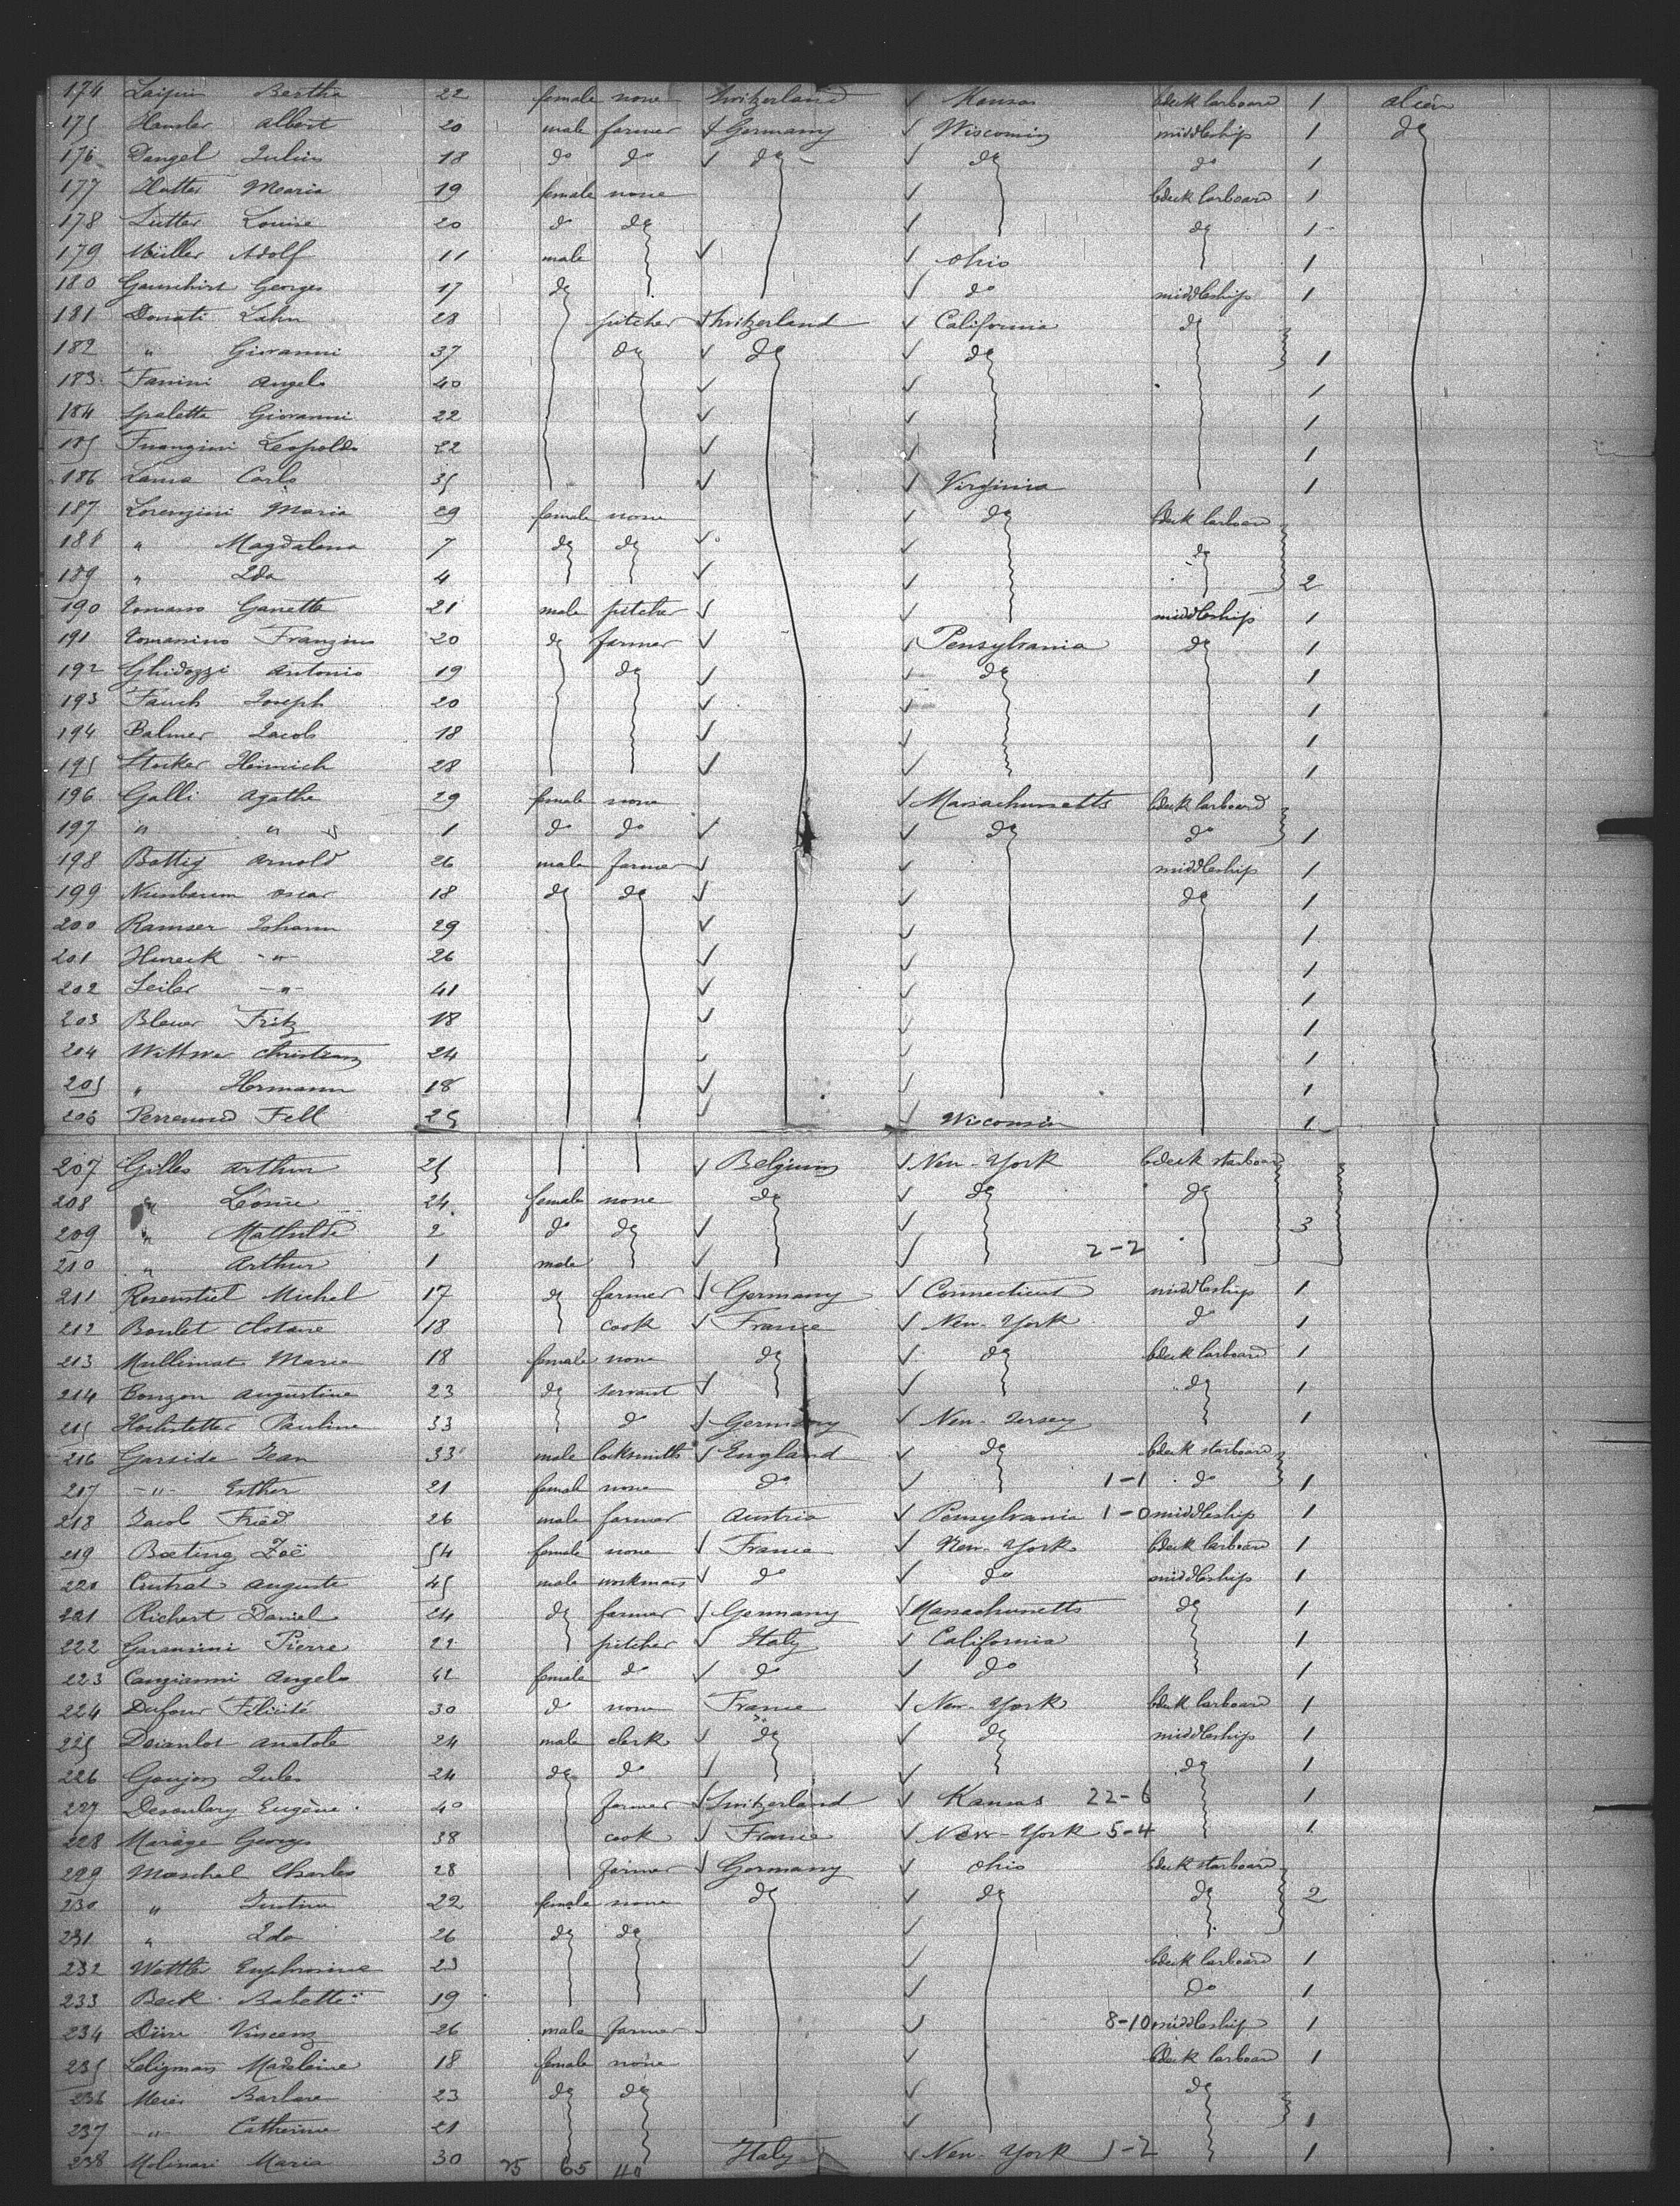 174 Bertha 22 female none Switzerland ✓ Kansas bdeck larboard 1 alien
175 Albert 20 male farmer ✓ Germany ✓ Wisconsin middleship 1 do
176 Dangel Julius 18 do do ✓ do ✓ do do 1
177 Hutter Maria 19 female none ✓ bdeck larboard 1
178 Sutter Louise 20 do do ✓ do 1
179 Müller Adolf 11 male ✓ ✓ Ohio 1
180 Georges 17 do ✓ do middleship 1
181 Donati 28 pitcher ✓ Switzerland ✓ California do
182 " Giovanni 37 do ✓ do ✓ do 1
183 Fanini Angelo 40 ✓ ✓ 1
184 Spaletta Giovanni 22 ✓ ✓ 1
185 Franzini Leopoldo 22 ✓ ✓ 1
186 Carlo 35 ✓ ✓ Virginia 1
187 Lorenzini Maria 29 female none ✓ do bdeck larboard
188 " Magdalena 7 do do ✓ ✓ do
189 " Ida 4 ✓ ✓ 2
190 Tomaso Ganetta 21 male pitcher ✓ ✓ middleship 1
191 Tomasino Franzino 20 do farmer ✓ ✓ Pensylvania do 1
192 Ghidozzi Antonio 19 do ✓ ✓ do 1
193 Fauch Joseph 20 ✓ ✓ 1
194 Balmer Jacob 18 ✓ ✓ 1
195 Stocker Heinrich 28 ✓ ✓ 1
196 Galli Agathe 29 female none ✓ Massachussetts bdeck larboard
197 " " 1 do do ✓ ✓ do do 1
198 Battig Arnold 26 male farmer ✓ ✓ middleship 1
199 Nussbaum Oscar 18 do do ✓ ✓ do 1
200 Ramser Johann 29 ✓ ✓ 1
201 " 26 ✓ ✓ 1
202 Seiler " 41 ✓ ✓ 1
203 Bleuer Fritz 18 ✓ ✓ 1
204 Wittwer Christian 24 ✓ ✓ 1
205 " Hermann 18 ✓ ✓ 1
206 Perrenoud 25 ✓ ✓ Wisconsin 1
207 Gilles Arthur 25 ✓ Belgium ✓ New-York bdeck starboard
208 " Léonie 24 female none do ✓ do do
209 " Mathilde 2 do do ✓ ✓ 3
210 " Arthur 1 male ✓ ✓ 2-2
211 Rosenstiel Michel 17 do farmer ✓ Germany ✓ Connecticut middleship 1
212 Boulet Clotaire 18 cook ✓ France ✓ New-York do 1
213 Marie 18 female none do ✓ do bdeck larboard 1
214 Bonzon Augustine 23 do servant ✓ ✓ do 1
215 Hochstetter Pauline 33 do ✓ Germany ✓ New-Jersey 1
216 Garside Jean 33 male locksmith ✓ England ✓ do bdeck starboard
217 " Esther 21 female none do ✓ 1-1 do 1
218 Jacob Fried 26 male farmer Austria ✓ Pensylvania 1-0 middleship 1
219 Zoë 54 female none ✓ France ✓ New-York bdeck larboard 1
220 Auguste 45 male workman ✓ do ✓ do middleship 1
221 Richert Daniel 24 do farmer ✓ Germany ✓ Massachussetts do 1
222 Pierre 22 pitcher ✓ Italy ✓ California 1
223 Cangianni Angelo 42 female do ✓ do ✓ do 1
224 Dufour Félicité 30 do none France ✓ New-York bdeck larboard 1
225 Anatole 24 male clerk ✓ do do middleship 1
226 Goujon Jules 24 do do ✓ ✓ do 1
227 Eugène 40 farmer ✓ Switzerland ✓ Kansas 22-6 1
228 Marage Georges 38 cook ✓ France ✓ New-York 5-4 1
229 Moeschel Charles 28 farmer ✓ Germany ✓ Ohio bdeck starboard
230 " Justine 22 female none do ✓ do do 2
231 " Ida 26 do do ✓
232 Euphrosine 23 ✓ bdeck larboard 1
233 Beck Babette 19 ✓ do 1
234 Vincenz 26 male farmer ✓ ✓ 8-10 middleship 1
235 Seligman Madeleine 18 female none ✓ bdeck larboard 1
236 Meier Barbara 23 do do ✓ do
237 " Catherine 21 ✓ 1
238 Molinari Maria 30 Italy ✓ New-York 1-2 1
25 65 40